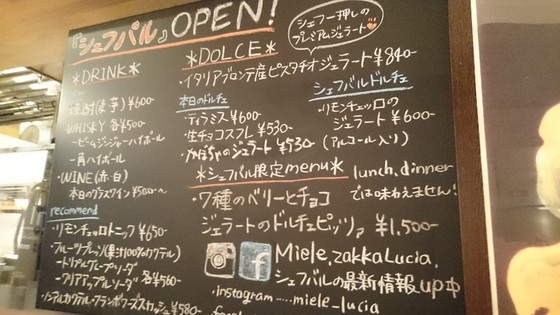 『シェフバル』OPEN!
シェフ一押しの
プレミアムジェラート
*DOLCE*
・イタリアブロンテ産ピスタチオジェラート¥840-
本日のドルチェ
・ティラミス¥600-
・生チョコスフレ¥530-
・かぼちゃのジェラート¥530-
シェフバルドルチェ
・リモンチェッロの
ジェラート¥600-
(アルコール入り)
*シェフバル限定menu*
lunch、dinner
では味わえません!
・7種のベリーとチョコ
ジェラートのドルチェピッツァ ¥1,500-
Miele.zakkaLucia.
シェフバルの最新情報up中
・instagram……miele_lucia
*DRINK*
焼酎(麦・芋)¥600-
・WHISKY 各¥500-
-ビームジンジャーハイボール
-角ハイボール
・WINE(赤・白)
本日のグラスワイン ¥500-~
recommend
・リモンチェッロトニック ¥650-
・フルーツプレッソ(果汁100%カクテル)
-トリプルグレープソーダ
-クリアアップルソーダ 各¥560-
・ノンアルカクテル・フランボワーズスカッシュ¥580-